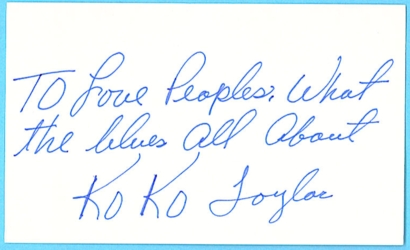 To Love Peoples. What
the blues all About
KoKo Taylor